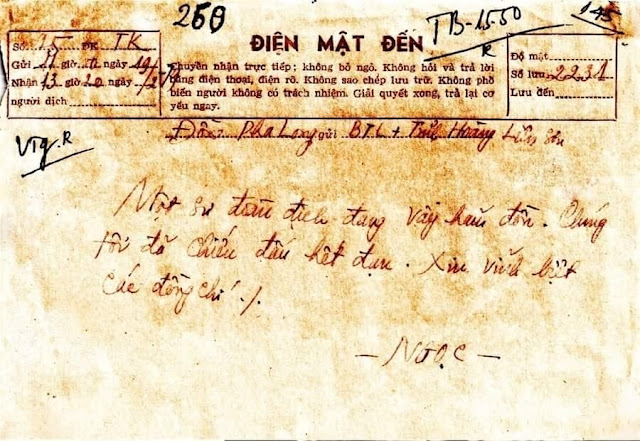 250
TB-1550
R
145
Số 15 ĐK TK
Gửi 11 giờ 50 ngày 19/2
Nhận 13 giờ 20 ngày 19/2
người dịch
ĐIỆN MẬT ĐẾN
Chuyển nhận trực tiếp; không bỏ ngỏ. Không hỏi và trả lời
bằng điện thoại, điện rõ. Không sao chép lưu trữ. Không phổ
biến người không có trách nhiệm. Giải quyết xong, trả lại cơ
yếu ngay.
Độ mật
Số lưu 2231
Lưu đến
Vtg. R
Đồn Pha Long gửi BTL + Tỉnh Hoàng Liên Sơn
Một sư đoàn địch đang vây hãm đồn. Chúng
tôi đã chiến đấu hết đạn. Xin vĩnh biệt
các đồng chí ./.
— NGỌC —